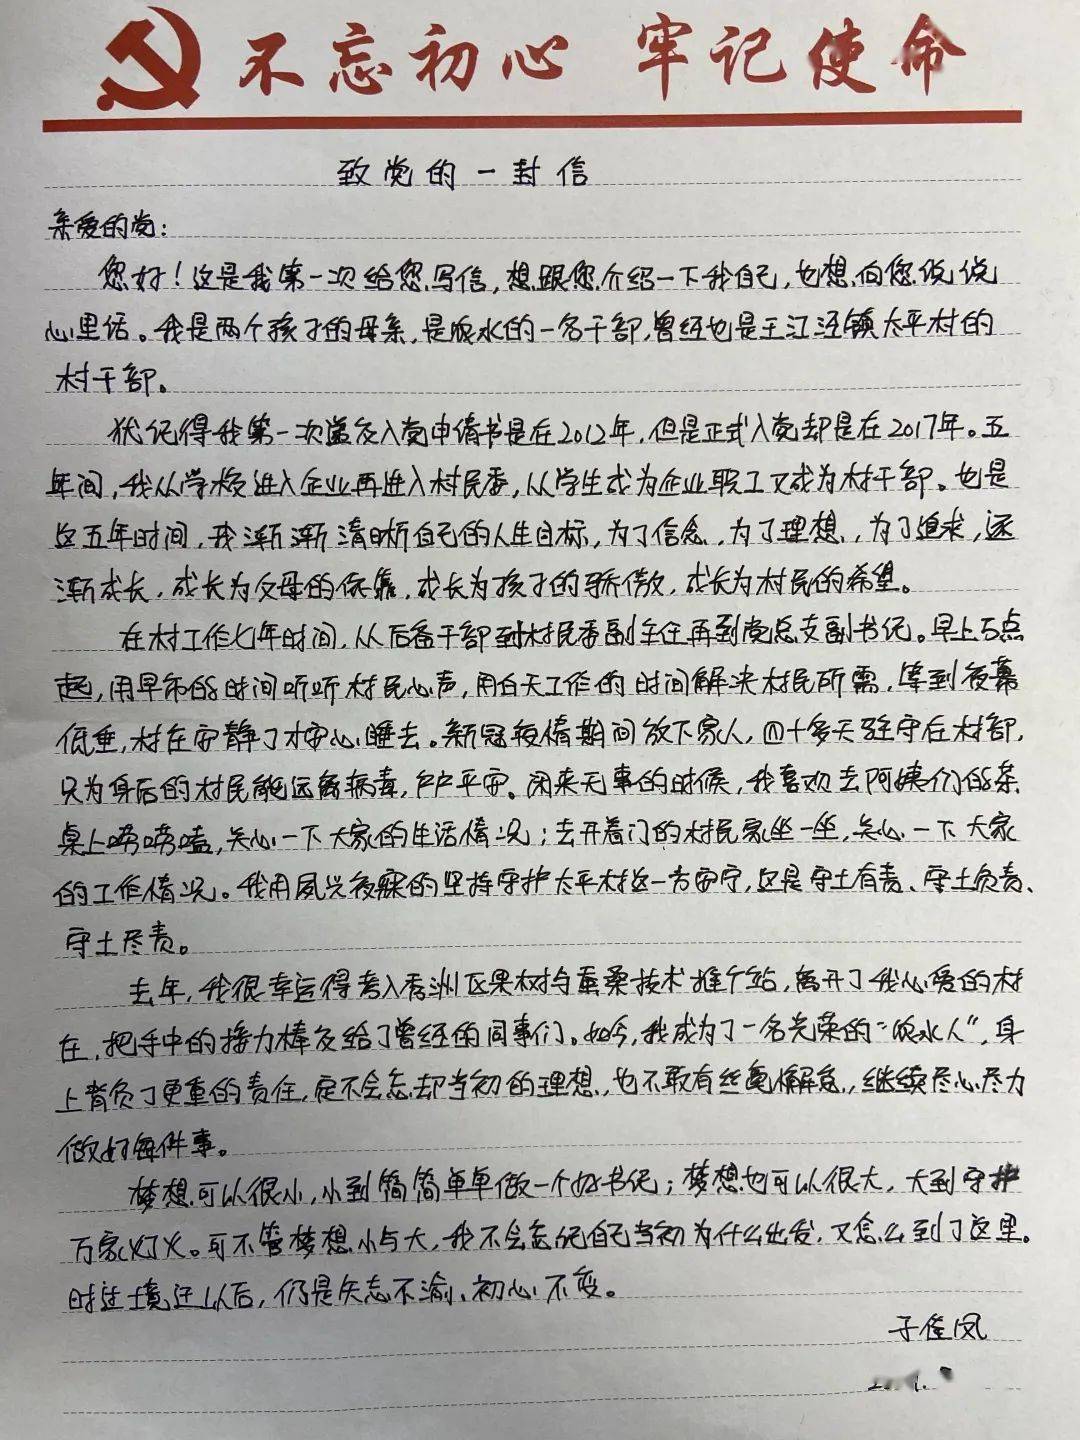 不忘初心 牢记使命
致党的一封信
亲爱的党:
您好!这是我第一次给您写信,想跟您介绍一下我自己,也想向您说说
心里话。我是两个孩子的母亲,是农水的一名干部,曾经也是王江泾镇太平村的
村干部。
犹记得我第一次递交入党申请书是在2012年,但是正式入党却是在2017年。五
年间,我从学校进入企业再进入村民委,从学生成为企业职工又成为村干部。也是
这五年时间,我渐渐清晰自己的人生目标,为了信念,为了理想,为了追求,逐
渐成长,成长为父母的依靠,成长为孩子的骄傲,成长为村民的希望。
在村工作七年时间,从后备干部到村民委副主任再到党总支副书记。早上5点
起,用早市的时间听听村民心声,用白天工作的时间解决村民所需,等到夜幕
低垂,村庄安静了才安心睡去。新冠疫情期间放下家人,四十多天驻守在村部,
只为身后的村民能远离病毒,户户平安。闲来无事的时候,我喜欢去阿姨们的茶
桌上唠唠嗑,关心一下大家的生活情况;去开着门的村民家坐一坐,关心一下大家
的工作情况。我用夙兴夜寐的坚持守护太平村这一方安宁,这是守土有责、守土负责、
守土尽责。
去年,我很幸运得考入秀洲区果树与蚕桑技术推广站,离开了我心爱的村
庄,把手中的接力棒交给了曾经的同事们。如今,我成为了一名光荣的“农水人”,身
上背负了更重的责任,定不会忘却当初的理想,也不敢有丝毫懈怠,继续尽心尽力
做好每件事。
梦想可以很小,小到简简单单做一个好书记;梦想也可以很大,大到守护
万家灯火。可不管梦想小与大,我不会忘记自己当初为什么出发,又怎么到了这里。
时过境迁以后,仍是矢志不渝、初心不变。
佳凤